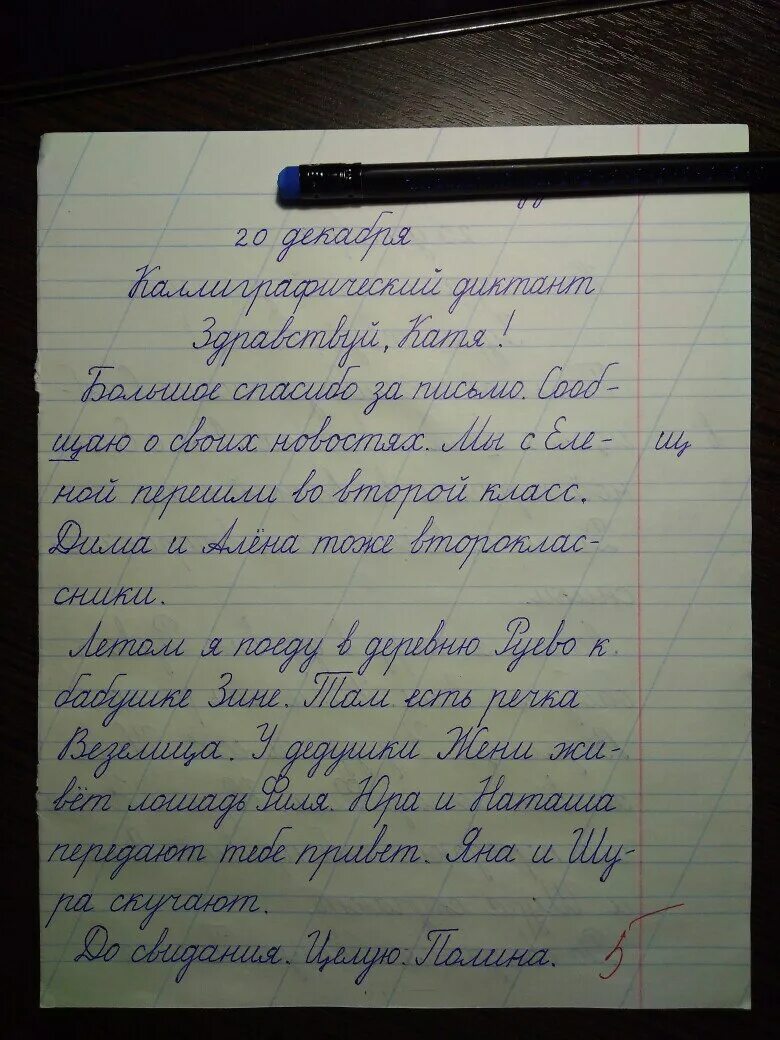 20 декабря
Каллиграфический диктант
Здравствуй, Катя!
Большое спасибо за письмо. Сооб-
щаю о своих новостях. Мы с Еле- щ
ной перешли во второй класс.
Дима и Алёна тоже второклас-
сники.
Летом я поеду в деревню Руево к
бабушке Зине. Там есть речка
Везелица. У дедушки Жени жи-
вёт лошадь Филя. Юра и Наташа
передают тебе привет. Яна и Шу-
ра скучают.
До свидания. Целую. Полина.
5